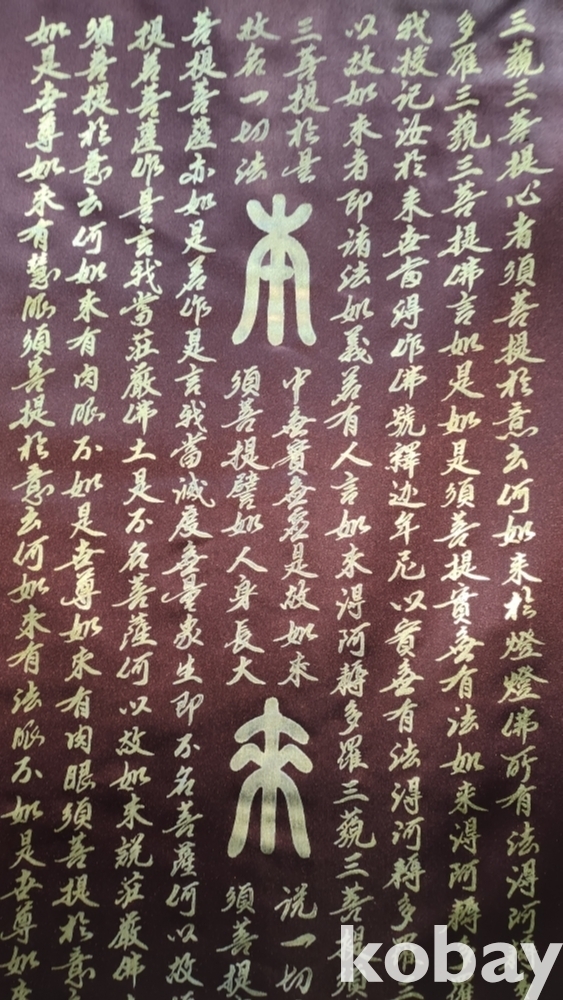 三藐三菩提心者須菩提於意云何如来於燈燈佛所有法得阿
多羅三藐三菩提佛言如是如是須菩提實無有法如来得阿耨
我授記汝於来世當得作佛號釋迦牟尼以實無有法得阿耨多羅三
以故如来者即諸法如義若有人言如来得阿耨多羅三藐三菩
三菩提於是
故名一切法
本
中無實無虛是故如来
須菩提譬如人身長大
来
说一切
須菩提
菩提菩薩亦如是若作是言我當滅度無量衆生即不名菩薩何以故
提若菩薩作是言我當莊嚴佛土是不名菩薩何以故如来說莊嚴佛
須菩提於意云何如来有肉眼不如是世尊如来有肉眼須菩提於意
如是世尊如来有慧眼須菩提於意云何如来有法眼不如是世尊如来
kobay